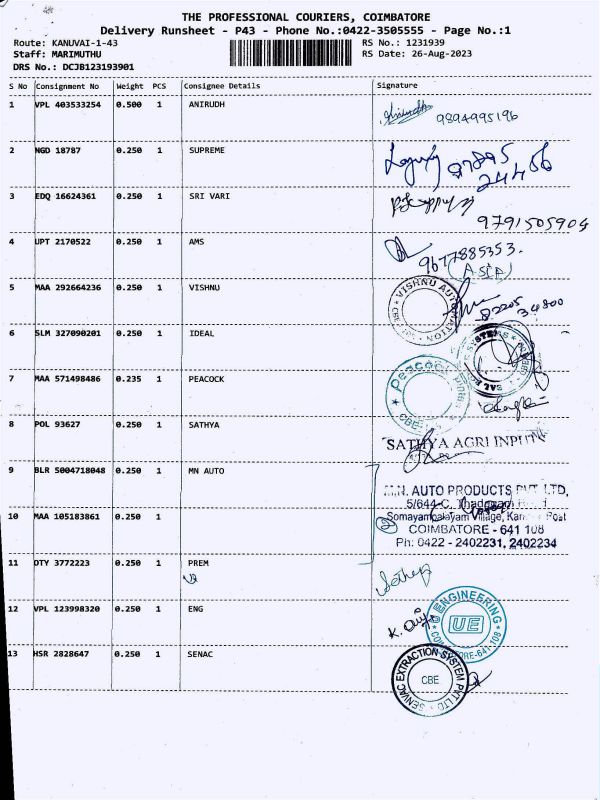 THE PROFESSIONAL COURIERS, COIMBATORE
Delivery Runsheet - P43 - Phone No.:0422-3505555 - Page No.:1
Route: KANUVAI-1-43 RS No.: 1231939
Staff: MARIMUTHU RS Date: 26-Aug-2023
DRS No.: DCJB123193901
S No Consignment No Weight PCS Consignee Details Signature
1 VPL 403533254 0.500 1 ANIRUDH Anirudh 9894995196
2 NGD 18787 0.250 1 SUPREME 97895
24456
3 EDQ 16624361 0.250 1 SRI VARI
9791505904
4 UPT 2170522 0.250 1 AMS 9677885353.
5 MAA 292664236 0.250 1 VISHNU VISHNU AUTOMATION 82205
34800
6 SLM 327090201 0.250 1 IDEAL SYSTEMS
7 MAA 571498486 0.235 1 PEACOCK Peacock CBE
8 POL 93627 0.250 1 SATHYA SATHYA AGRI INPUTS
9 BLR 5004718048 0.250 1 MN AUTO M.N. AUTO PRODUCTS PVT. LTD,
5/644-C,
Somayampalayam Village, Post
10 MAA 105183861 0.250 1 COIMBATORE - 641 108
Ph: 0422 - 2402231, 2402234
11 DTY 3772223 0.250 1 PREM Sathya
12 VPL 123998320 0.250 1 ENG ENGINEERING UE 641 108
13 HSR 2828647 0.250 1 SENAC SENVAC EXTRACTION SYSTEM PVT LTD CBE